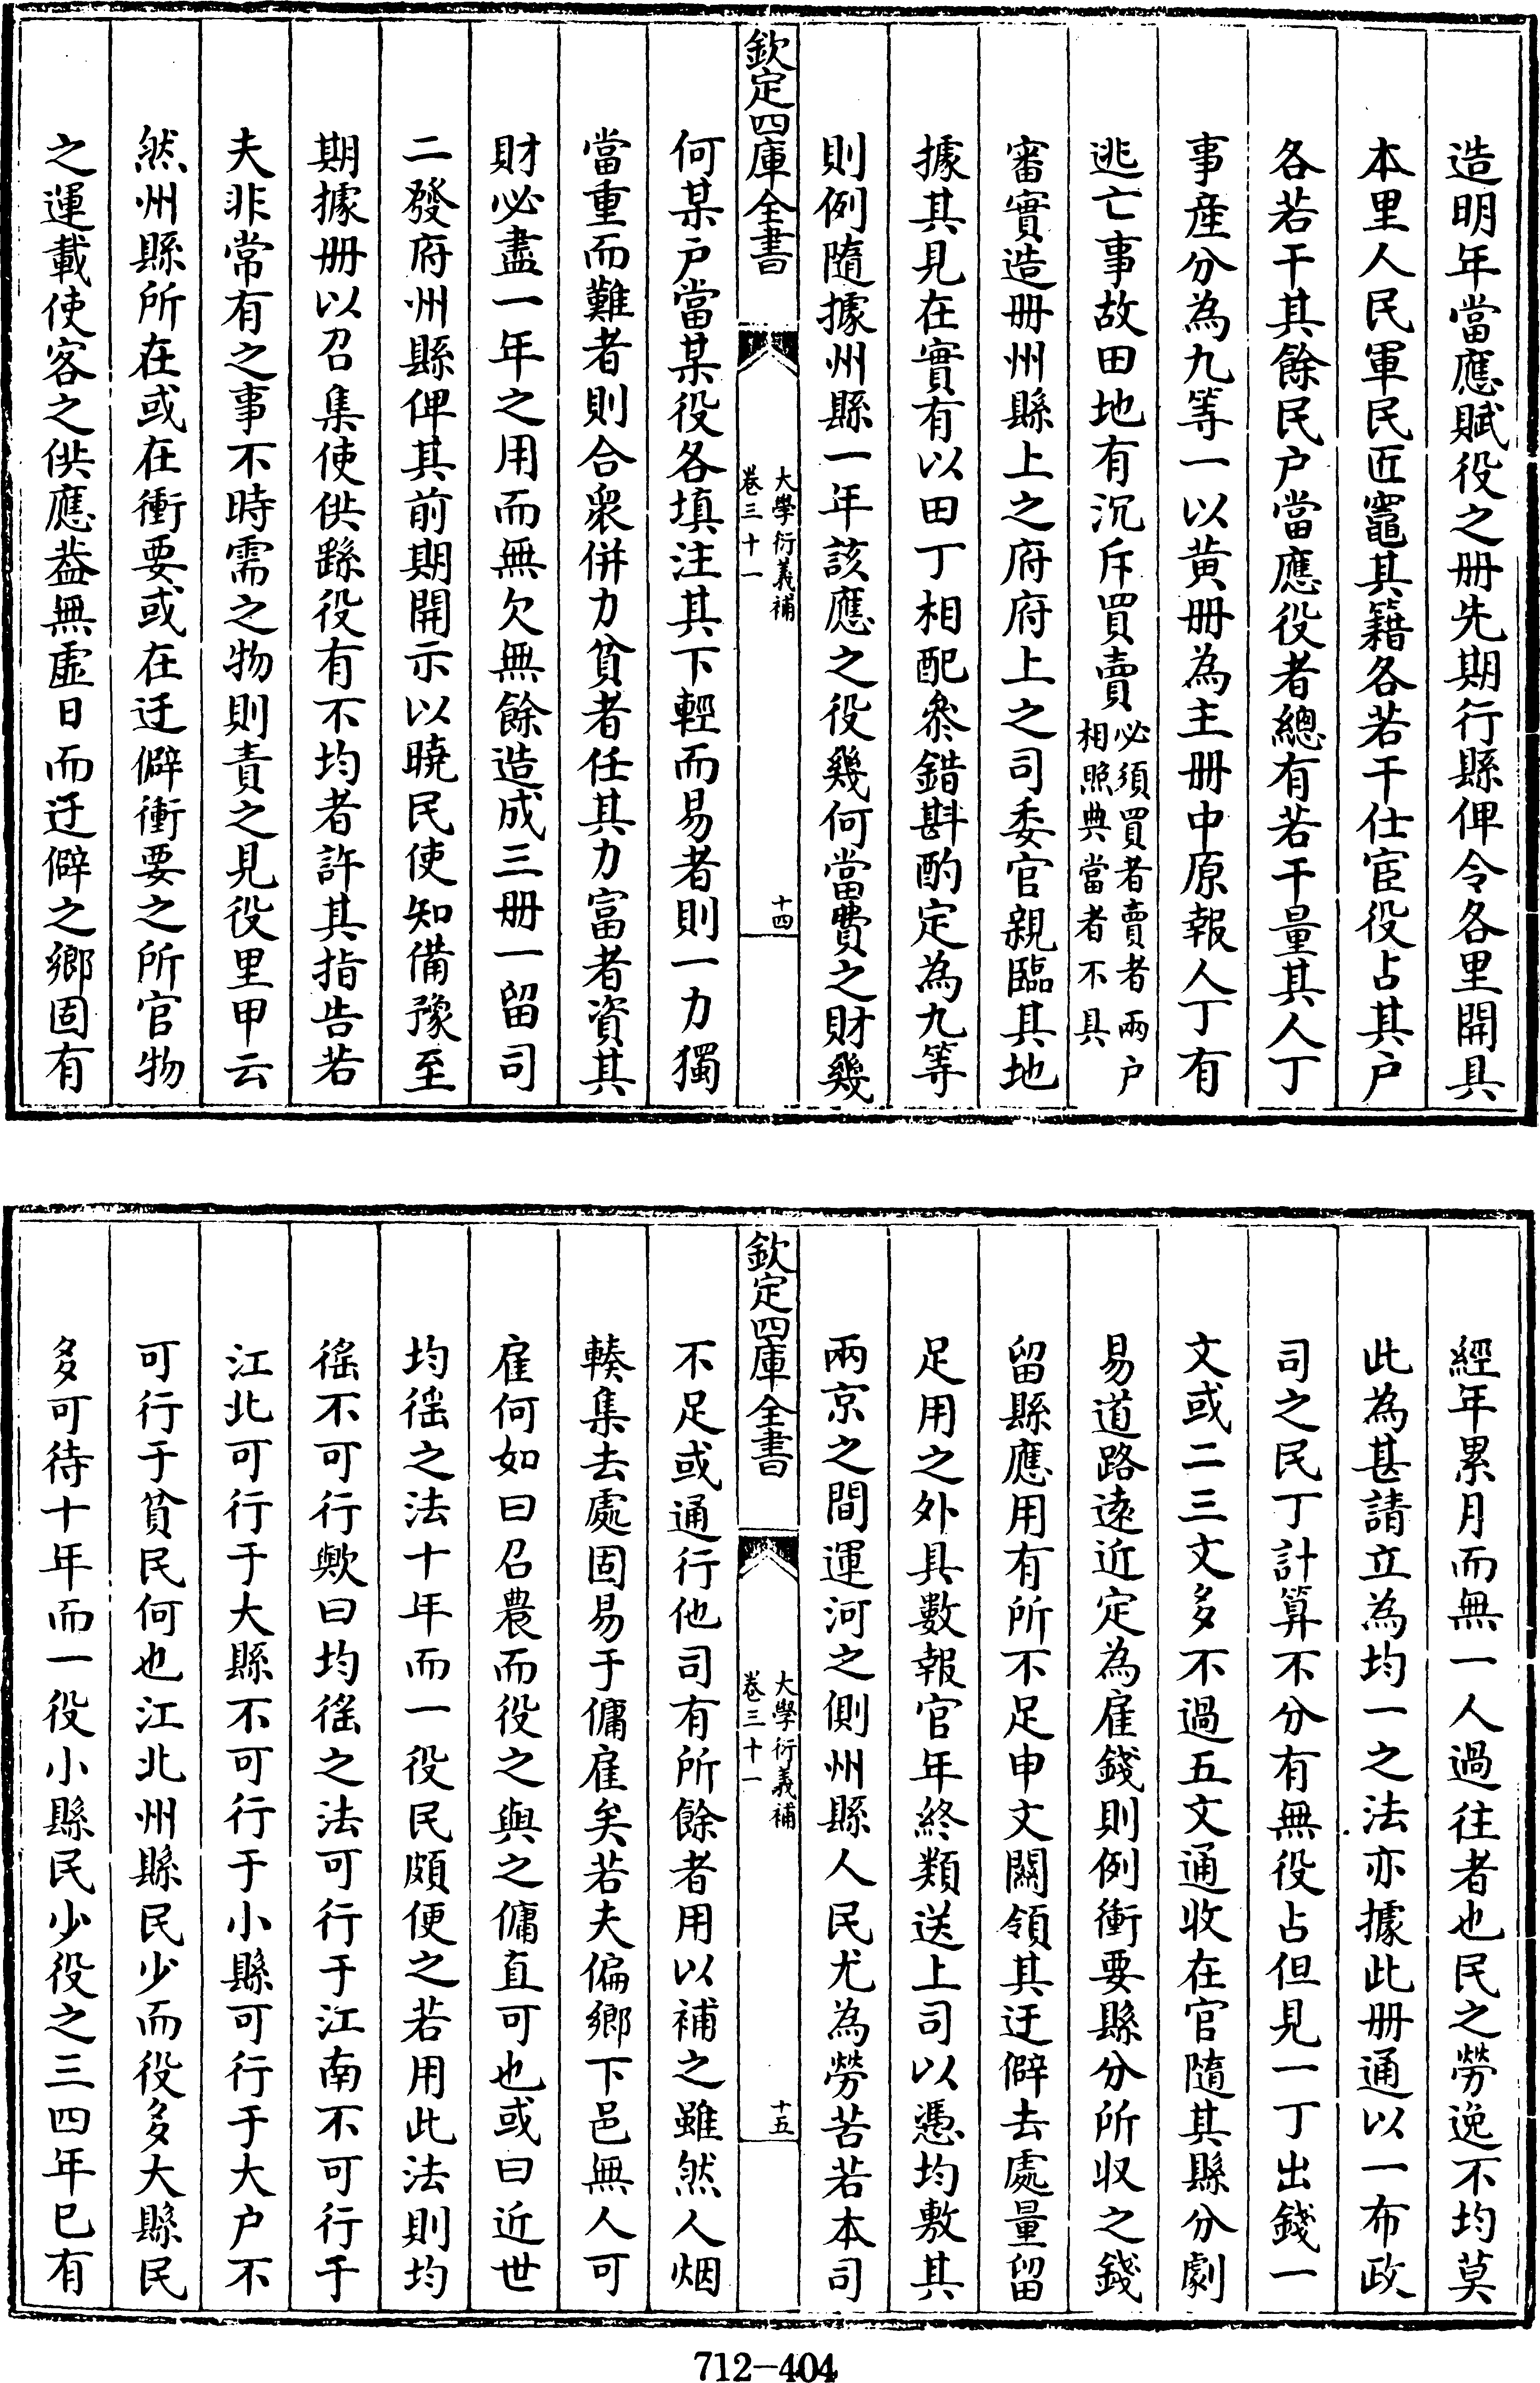 造明年當應賦役之冊先期行縣俾令各里開具
本里人民軍民匠竈其籍各若干仕宦役占其戶
各若干其餘民戶當應役者總有若干量其人丁
事産分為九等一以黄冊為主冊中原報人丁有
逃亡事故田地有沉斥買賣必須買者賣者兩戶
相照典當者不具
審實造冊州縣上之府府上之司委官親臨其地
據其見在實有以田丁相配叅錯斟酌定為九等
則例隨據州縣一年該應之役幾何當費之財幾
欽定四庫全書
大學衍義補
卷三十一
十四
何某戶當某役各填注其下輕而易者則一力獨
當重而難者則合衆併力貧者任其力富者資其
財必盡一年之用而無欠無餘造成三冊一留司
二發府州縣俾其前期開示以曉民使知備豫至
期據冊以召集使供繇役有不均者許其指告若
夫非常有之事不時需之物則責之見役里甲云
然州縣所在或在衝要或在迂僻衝要之所官物
之運載使客之供應葢無虛日而迂僻之鄉固有
經年累月而無一人過往者也民之勞逸不均莫
此為甚請立為均一之法亦據此冊通以一布政
司之民丁計算不分有無役占但見一丁出錢一
文或二三文多不過五文通收在官隨其縣分劇
易道路遠近定為雇錢則例衝要縣分所収之錢
留縣應用有所不足申文關領其迂僻去處量留
足用之外具數報官年終類送上司以憑均敷其
兩京之間運河之側州縣人民尤為勞苦若本司
欽定四庫全書
大學衍義補
卷三十一
十五
不足或通行他司有所餘者用以補之雖然人烟
輳集去處固易于傭雇矣若夫偏鄉下邑無人可
雇何如曰召農而役之與之傭直可也或曰近世
均徭之法十年而一役民頗便之若用此法則均
徭不可行歟曰均徭之法可行于江南不可行于
江北可行于大縣不可行于小縣可行于大戶不
可行于貧民何也江北州縣民少而役多大縣民
多可待十年而一役小縣民少役之三四年已有
712-404